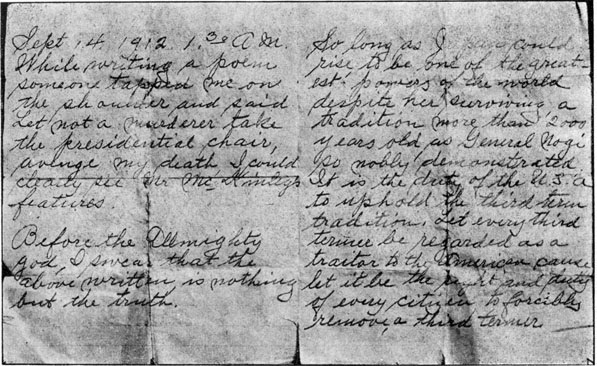 Sept 14, 1912 1.30 A.M.
While writing a poem
someone tapped me on
the shoulder and said
Let not a murderer take
the presidential chair,
avenge my death I could
clearly see Mr Mc Kinleys
features.
Before the Allmighty
god, I swear that the
above written is nothing
but the truth.
So long as J could
rise to be one of the great-
est powers of the world
despite her surviving a
tradition more than 2000
years old as General Nogi
so nobly demonstrated
It is the duty of the U.S.A
to uphold the third term
tradition. Let every third
termer be regarded as a
traitor to the American cause
let it be the right and duty
of every citizen to forcibly
remove a third termer